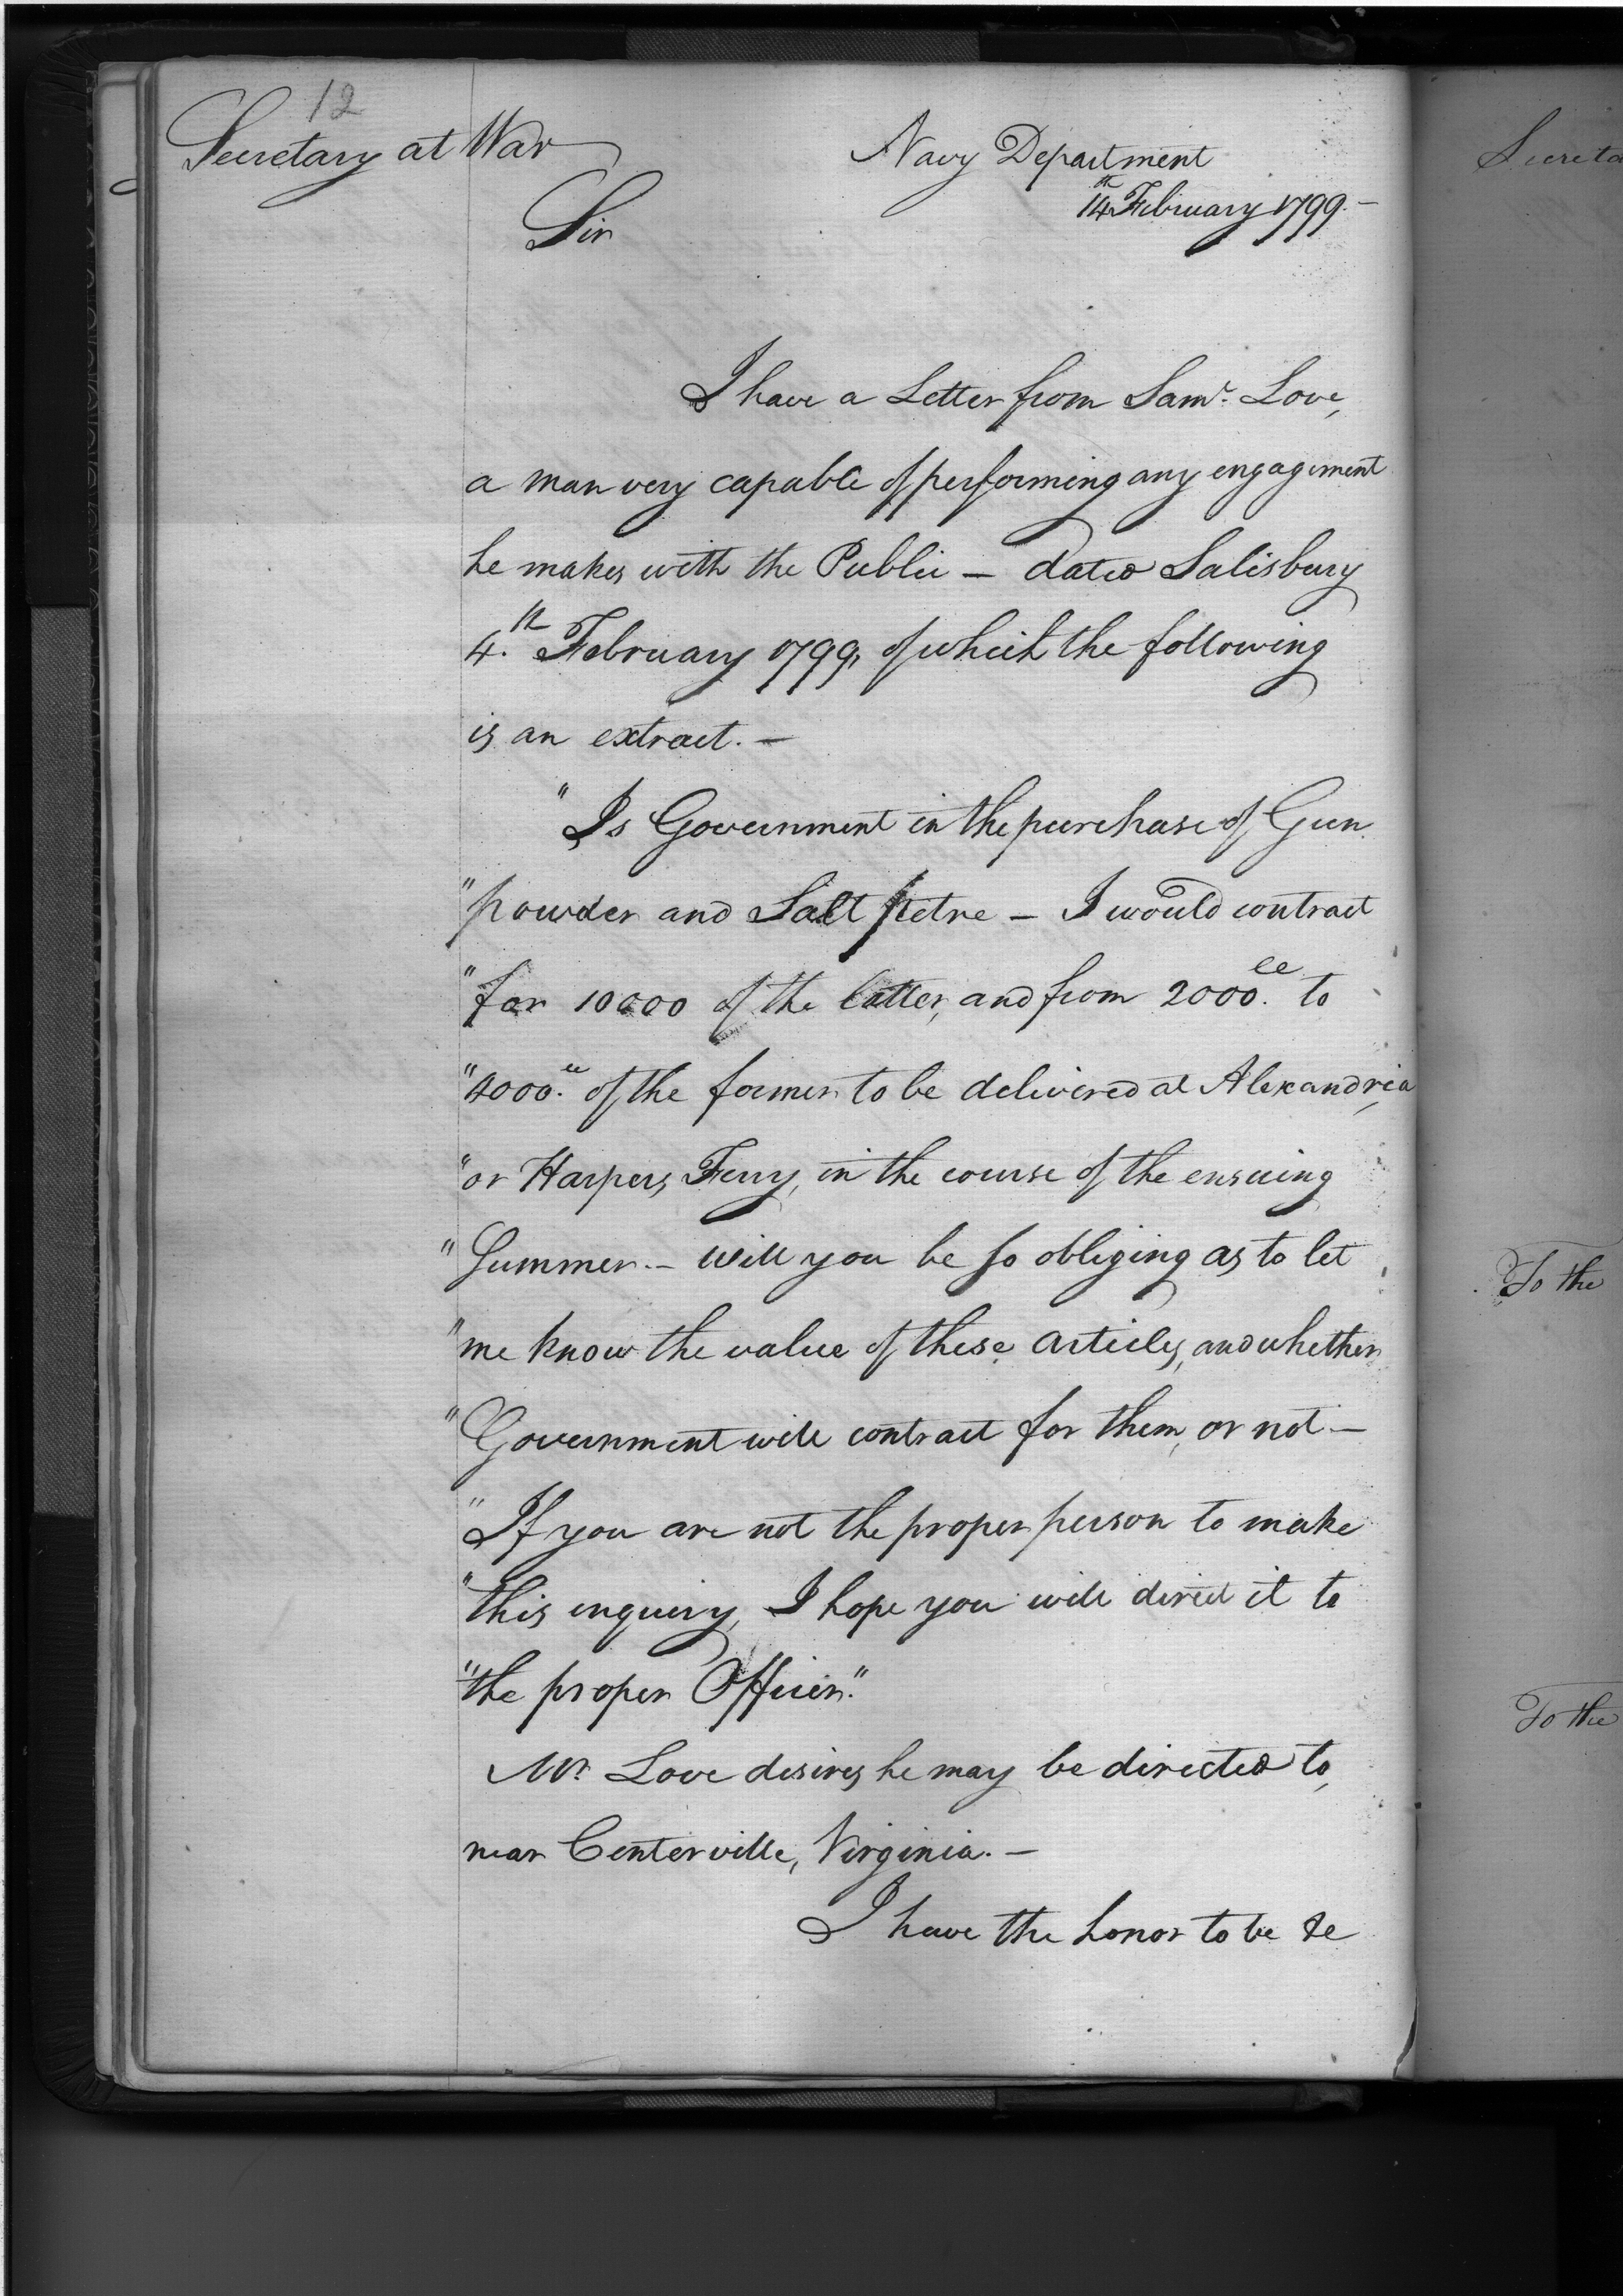 12
Secretary at War
Navy Department
14th February 1799.—
Sir
I have a Letter from Saml. Love,
a man very capable of performing any engagement
he makes with the Public — dated Salisbury
4th. February 1799, of which the following
is an extract. —
"Is Government in the purchase of Gun
"powder and Salt petre — I would contract
"for 10000 of the latter, and from 2000.ll to
"4000.ll of the former to be delivered at Alexandria,
"or Harpers Ferry, in the course of the ensuing
"Summer. — Will you be so obliging as to let
"me know the value of these articles, and whether
"Government will contract for them, or not. —
"If you are not the proper person to make
"this inquiry, I hope you will direct it to
"the proper Officer."
Mr. Love desires he may be directed to,
near Centerville, Virginia. —
I have the honor to be &c
Secreta
To the
To the